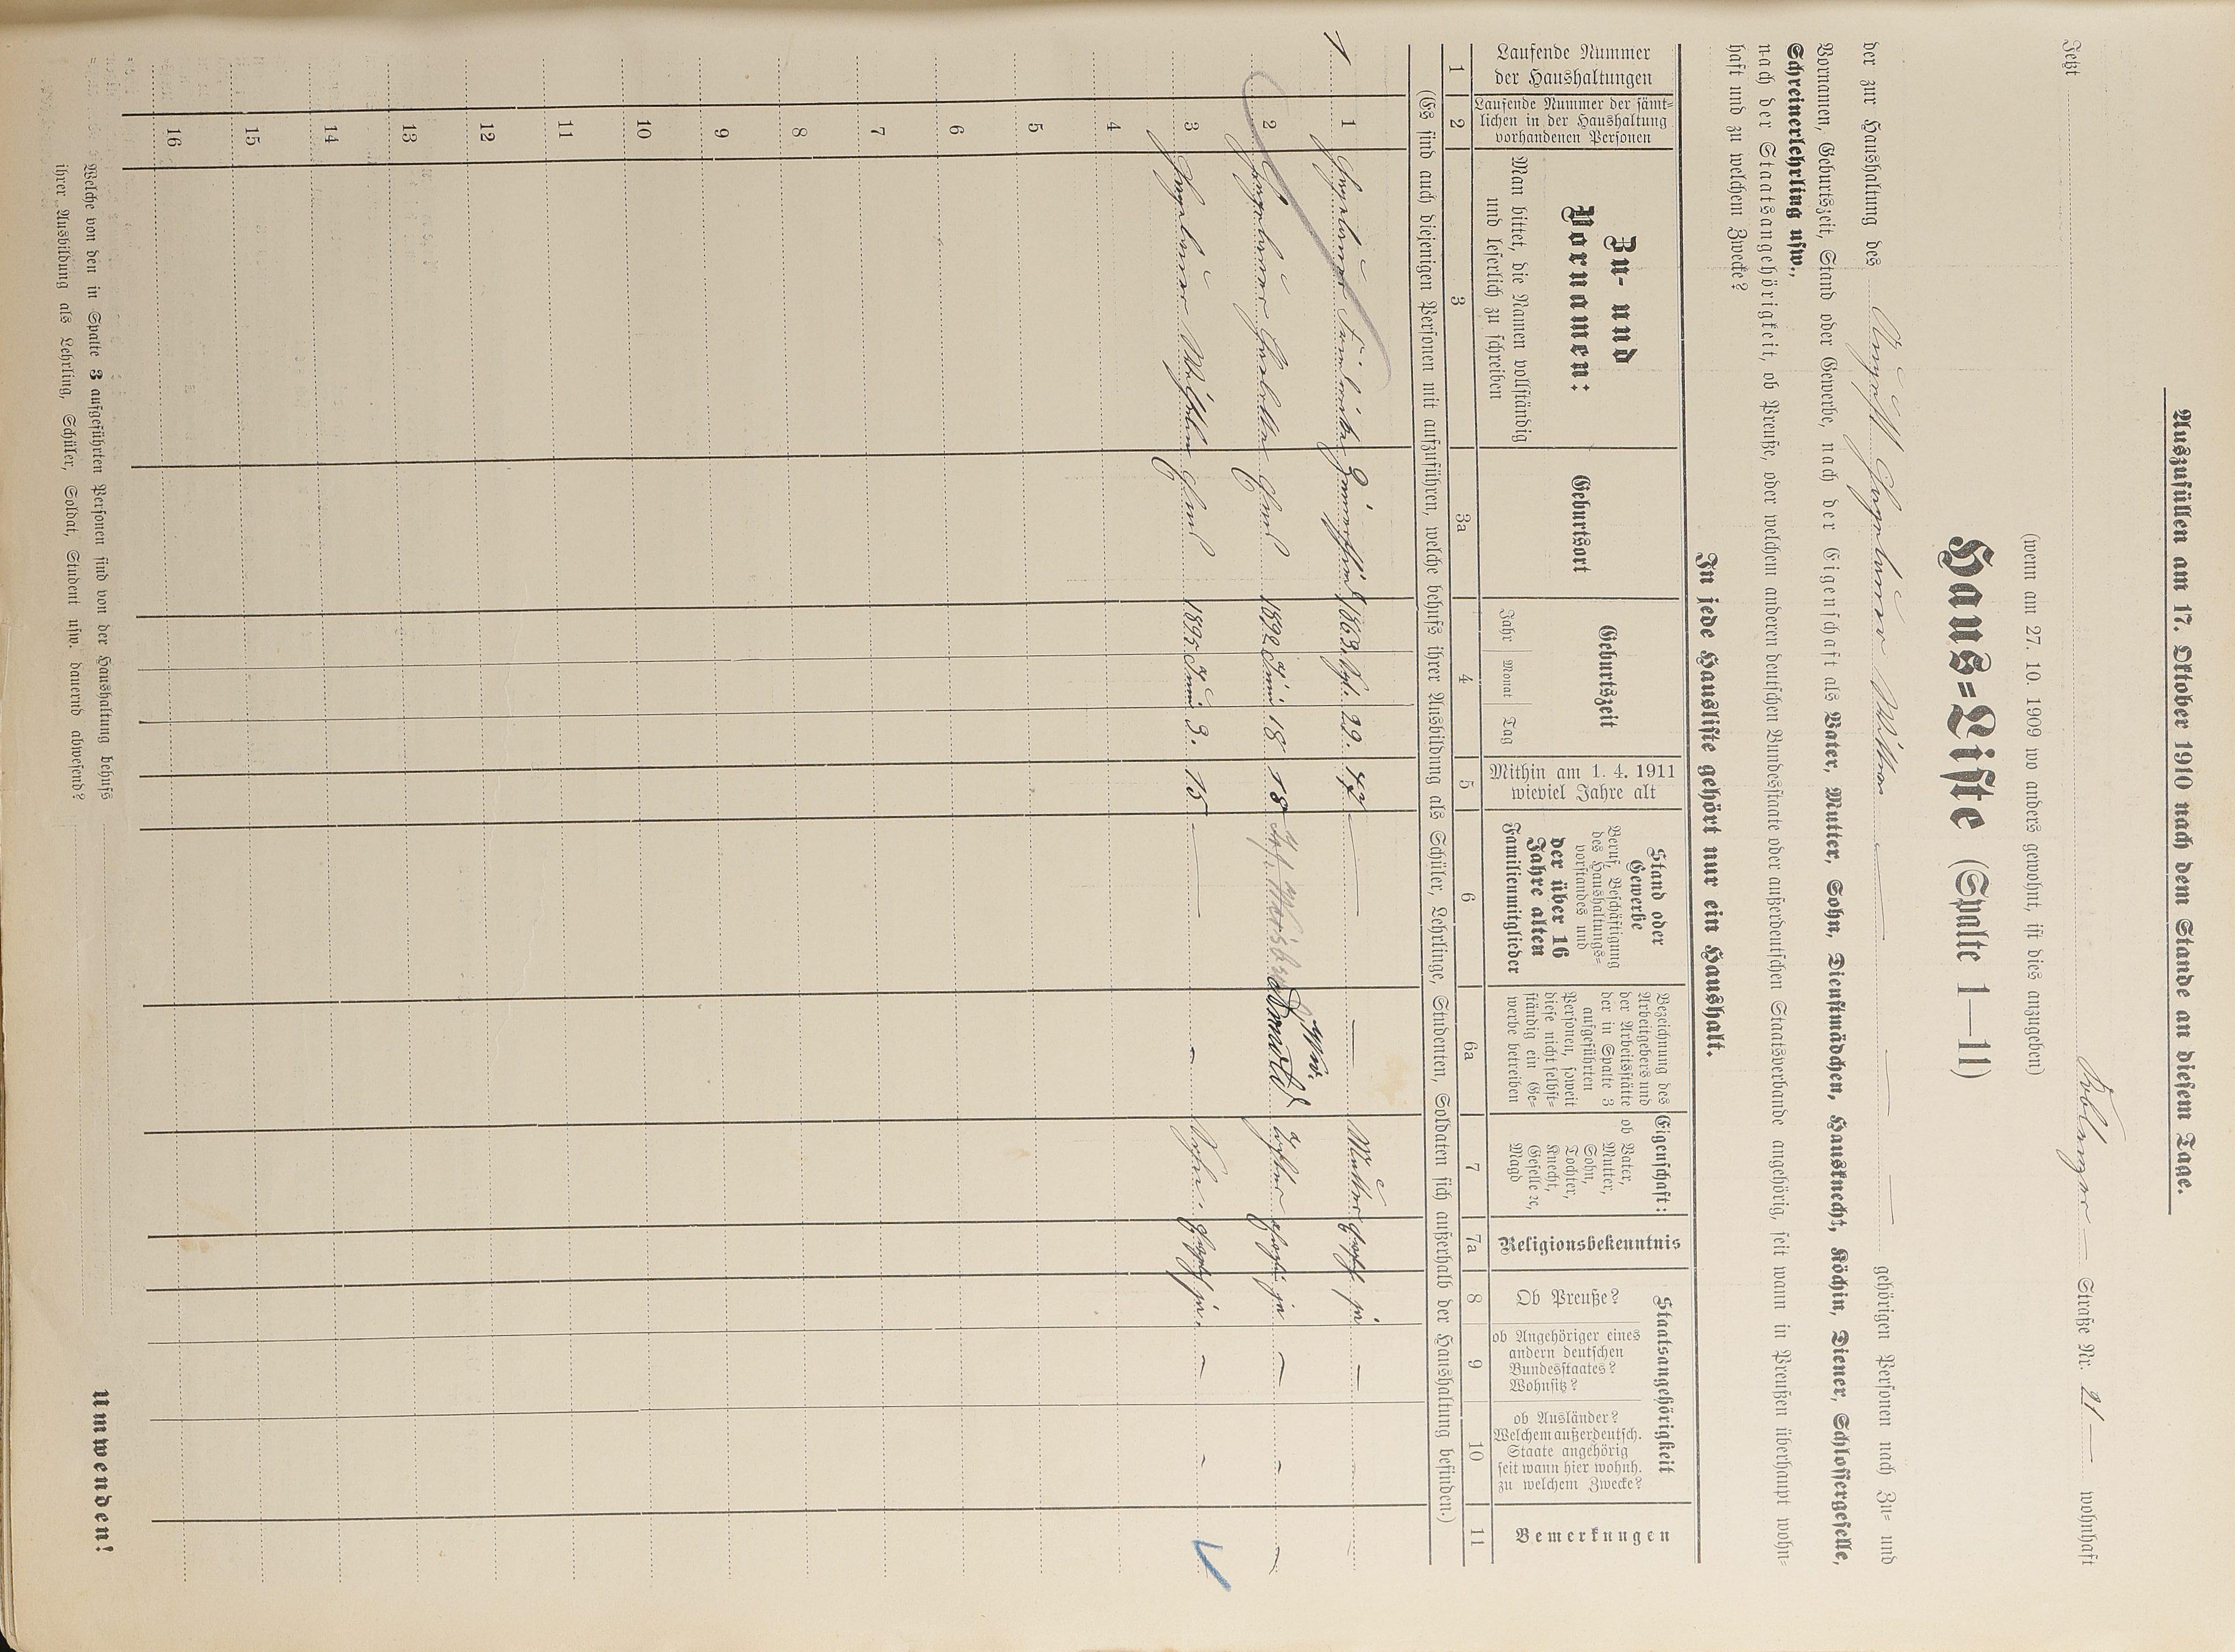 Auszufüllen am 17. Oktober 1910 nach dem Stande an diesem Tage.
Jetzt Straße Nr. 21 wohnhaft
(wenn am 27. 10. 1909 wo anders gewohnt, ist dies anzugeben)
Haus=Liste (Spalte 1—11)
der zur Haushaltung des gehörigen Personen nach Zu= und
Vornamen, Geburtszeit, Stand oder Gewerbe, nach der Eigenschaft als Vater, Mutter, Sohn, Dienstmädchen, Hausknecht, Köchin, Diener, Schlossergeselle,
Schreinerlehrling usw.,
nach der Staatsangehörigkeit, ob Preuße, oder welchem anderen deutschen Bundesstaate oder außerdeutschen Staatsverbande angehörig, seit wann in Preußen überhaupt wohn=
haft und zu welchem Zwecke?
In jede Hausliste gehört nur ein Haushalt.
Laufende Nummer
der Haushaltungen
Laufende Nummer der sämt=
lichen in der Haushaltung
vorhandenen Personen
Zu- und
Vornamen:
Man bittet, die Namen vollständig
und leserlich zu schreiben
Geburtsort
Geburtszeit
Jahr Monat Tag
Mithin am 1. 4. 1911
wieviel Jahre alt
Stand oder
Gewerbe
Beruf, Beschäftigung
des Haushaltungs=
vorstandes und
der über 16
Jahre alten
Familienmitglieder
Bezeichnung des
Arbeitgebers und
der Arbeitsstätte
der in Spalte 3
aufgeführten
Personen, soweit
diese nicht selbst=
ständig ein Ge=
werbe betreiben
Eigenschaft:
ob Vater,
Mutter,
Sohn,
Tochter,
Knecht,
Geselle ꝛc,
Magd
Religionsbekenntnis
Staatsangehörigkeit
Ob Preuße?
ob Angehöriger eines
andern deutschen
Bundesstaates?
Wohnsitz?
ob Ausländer?
Welchem außerdeutsch.
Staate angehörig
seit wann hier wohnh.
zu welchem Zwecke?
Bemerkungen
1 2 3 3a 4 5 6 6a 7 7a 8 9 10 11
(Es sind auch diejenigen Personen mit aufzuführen, welche behufs ihrer Ausbildung als Schüler, Lehrlinge, Studenten, Soldaten sich außerhalb der Haushaltung befinden.)
1 1 1863 29. 47 — — Mutter ja —
2 1892 Juni 18 18 ja — - —
3 Wilhelm 1895 Juni 3. 15 — - Sohn. ja. — -
4
5
6
7
8
9
10
11
12
13
14
15
16
Welche von den in Spalte 3 aufgeführten Personen sind von der Haushaltung behufs
ihrer Ausbildung als Lehrling, Schüler, Soldat, Student usw. dauernd abwesend?
Umwenden!